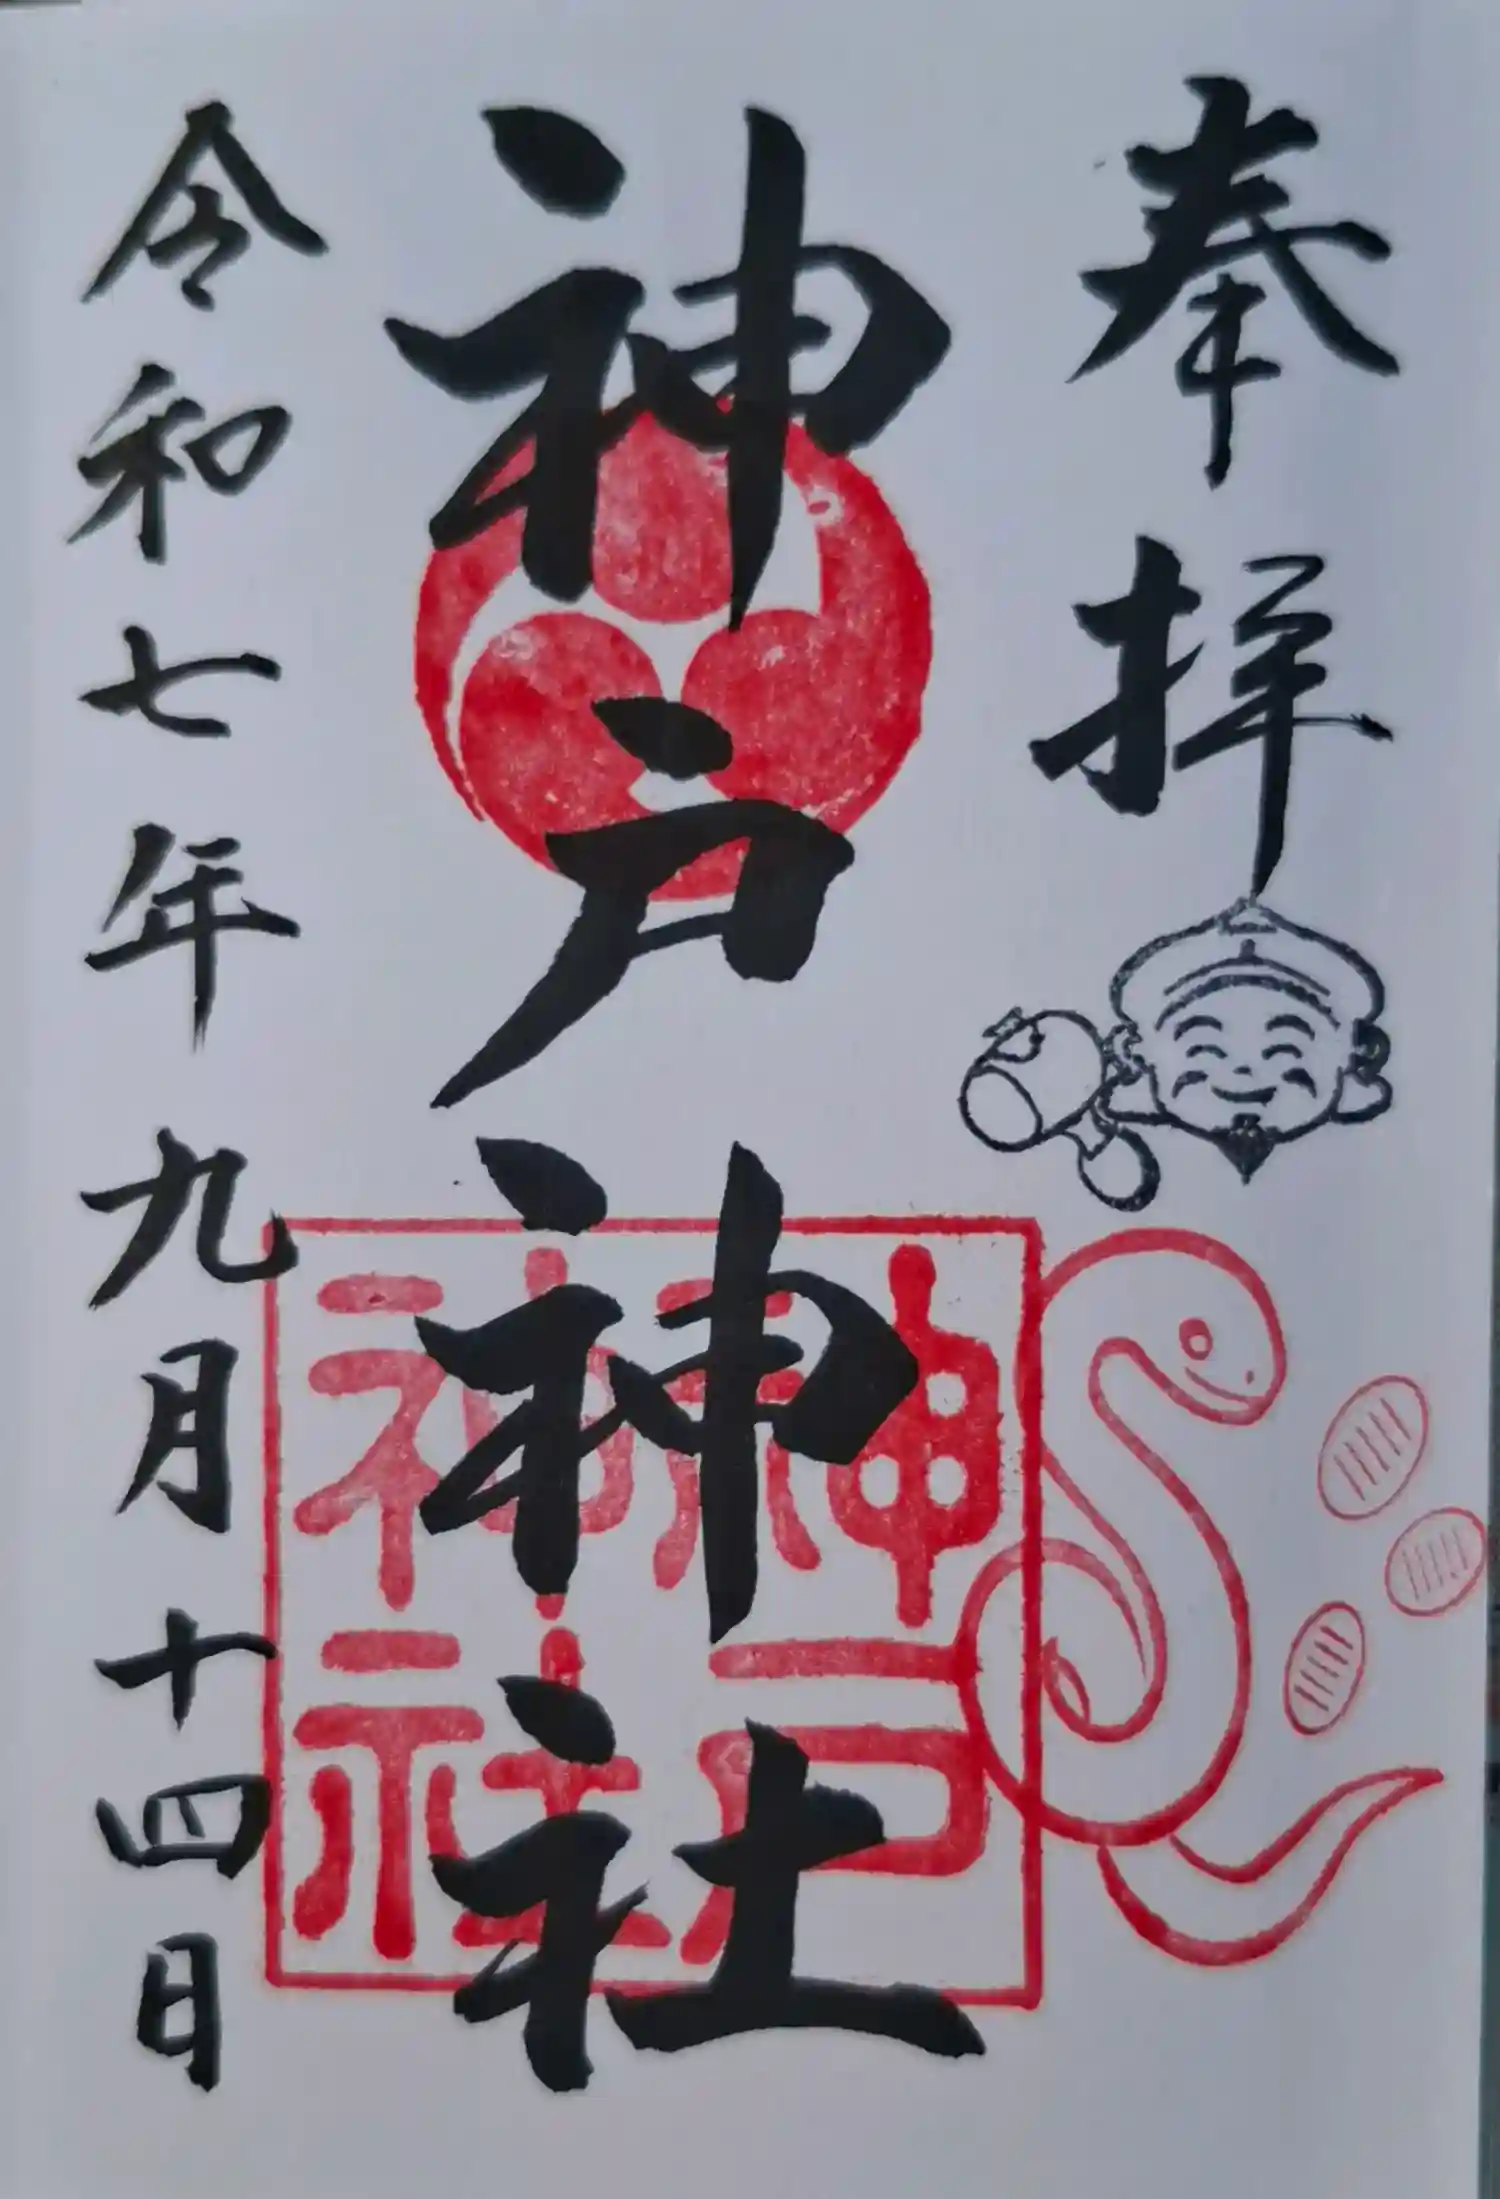 奉拝
神戸神社
神戸
神社
令和七年九月十四日